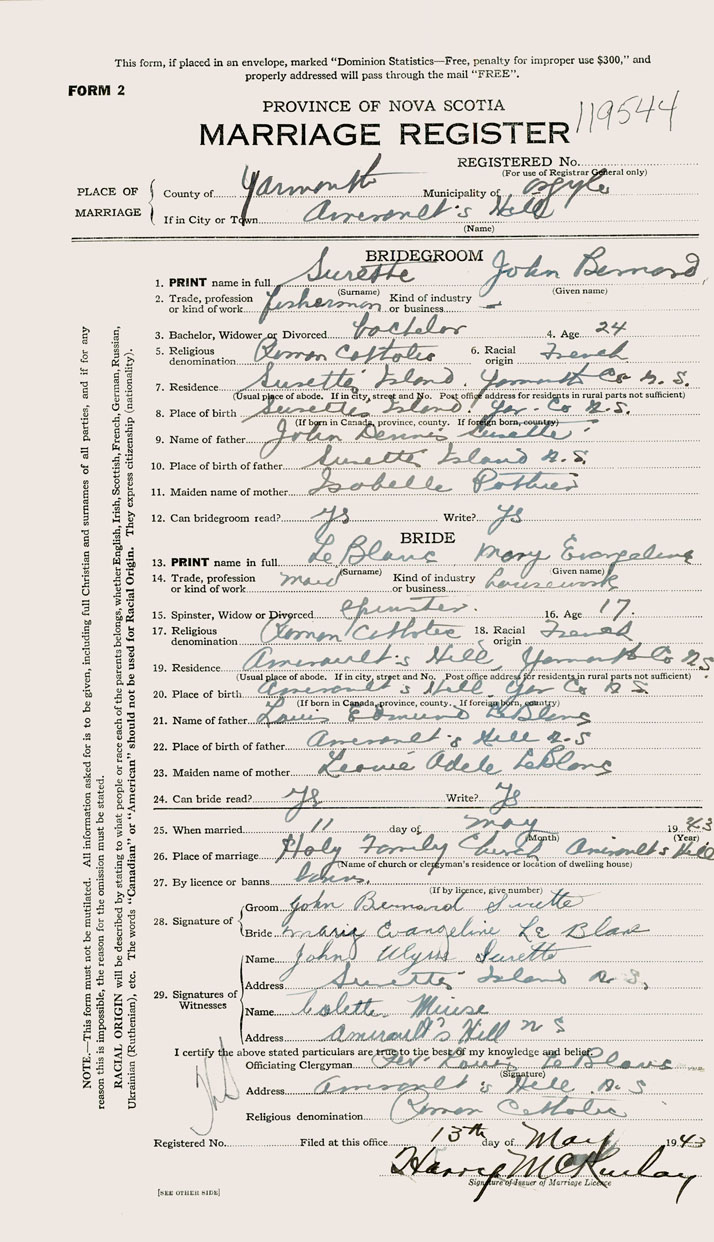 This form, if placed in an envelope, marked “Dominion Statistics—Free, penalty for improper use $300,” and
properly addressed will pass through the mail “FREE”.
FORM 2
PROVINCE OF NOVA SCOTIA
MARRIAGE REGISTER 119544
REGISTERED No.
(For use of Registrar General only)
PLACE OF MARRIAGE
County of Yarmouth Municipality of Argyle
If in City or Town Amirault's Hill
(Name)
BRIDEGROOM
1. PRINT name in full Surette John Bernard
(Surname) (Given name)
2. Trade, profession or kind of work fisherman Kind of industry or business —
3. Bachelor, Widower or Divorced bachelor 4. Age 24
5. Religious denomination Roman Catholic 6. Racial origin French
7. Residence Surette's Island, Yarmouth Co N.S.
(Usual place of abode. If in city, street and No. Post office address for residents in rural parts not sufficient)
8. Place of birth Surettes Island, Yar. Co N.S.
(If born in Canada, province, county. If foreign born, country)
9. Name of father John Dennis Surette
10. Place of birth of father Surette Island N.S.
11. Maiden name of mother Isobelle Pothier
12. Can bridegroom read? Ys Write? Ys
BRIDE
13. PRINT name in full Le Blanc Mary Evangeline
(Surname) (Given name)
14. Trade, profession or kind of work maid Kind of industry or business housework
15. Spinster, Widow or Divorced Spinster. 16. Age 17.
17. Religious denomination Roman Catholic 18. Racial origin French
19. Residence Amirault's Hill, Yarmouth Co N.S.
(Usual place of abode. If in city, street and No. Post office address for residents in rural parts not sufficient)
20. Place of birth Amirault's Hill, Yar Co N.S.
(If born in Canada, province, county. If foreign born, country)
21. Name of father Louis Edmund LeBlanc
22. Place of birth of father Amirault's Hill N.S
23. Maiden name of mother Leonie Adele LeBlanc
24. Can bride read? Ys Write? Ys
25. When married 11 day of May 1943
(Month) (Year)
26. Place of marriage Holy Family Church Amirault's Hill
(Name of church or clergyman's residence or location of dwelling house)
27. By licence or banns banns.
(If by licence, give number)
28. Signature of
Groom John Bernard Surette
Bride Mary Evangeline Le Blanc
29. Signatures of Witnesses
Name John Ulysse Surette
Address Surette's Island N.S.
Name Colette Meuse
Address Amirault's Hill N S
I certify the above stated particulars are true to the best of my knowledge and belief.
Officiating Clergyman Rev. Louis Le Blanc
(Signature)
Address Amirault's Hill N.S
Religious denomination Roman Catholic
Registered No. Filed at this office 13th day of May 1943
Harry McKinlay
Signature of Issuer of Marriage Licence
[SEE OTHER SIDE]
NOTE.—This form must not be mutilated. All information asked for is to be given, including full Christian and surnames of all parties, and if for any
reason this is impossible, the reason for the omission must be stated.
RACIAL ORIGIN will be described by stating to what people or race each of the parents belongs, whether English, Irish, Scottish, French, German, Russian,
Ukrainian (Ruthenian), etc. The words “Canadian” or “American” should not be used for Racial Origin. They express citizenship (nationality).